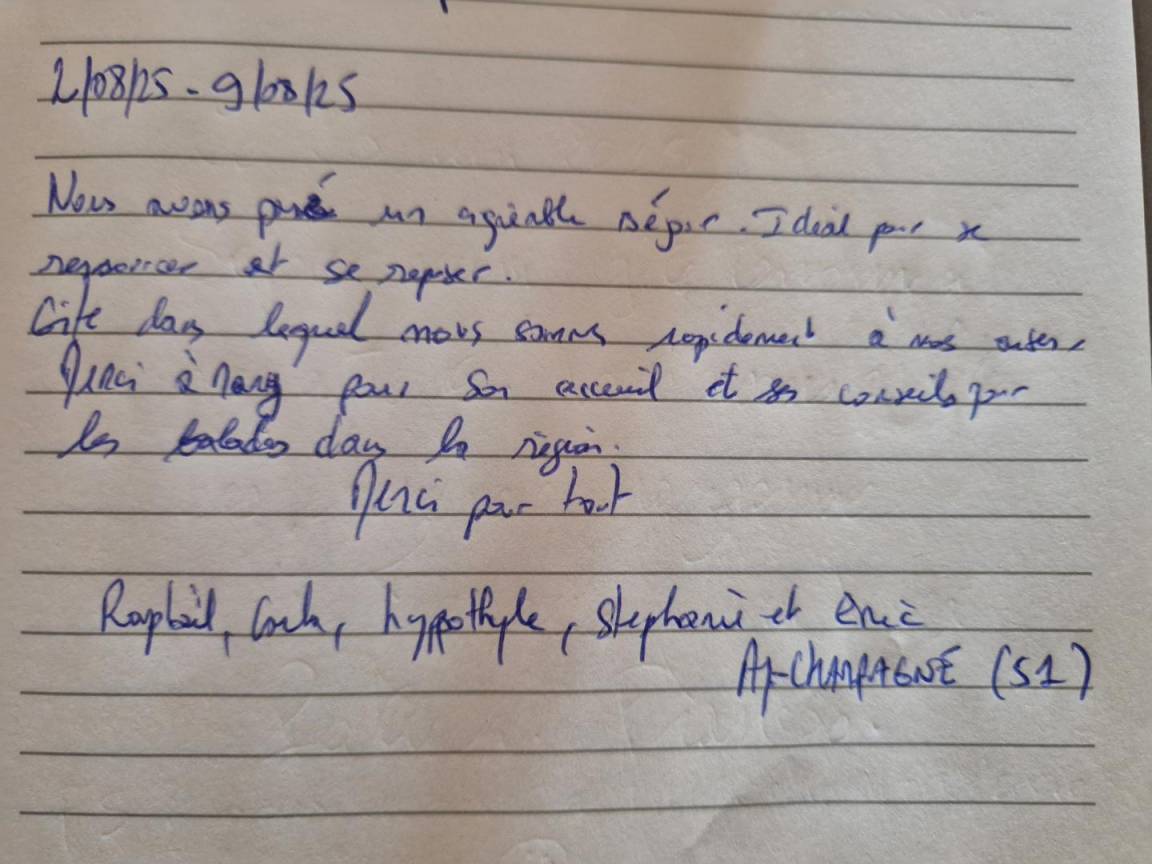 2/08/25 - 9/08/25
Nous avons passé un agréable séjour. Idéal pour se
ressourcer et se reposer.
Gîte dans lequel nous sommes rapidement à nos
Merci à pour son accueil et ses conseils pour
les balades dans la région.
Merci pour tout
Raphaël, hyppothyle, Stephanie et éric
Aÿ-CHAMPAGNE (51)